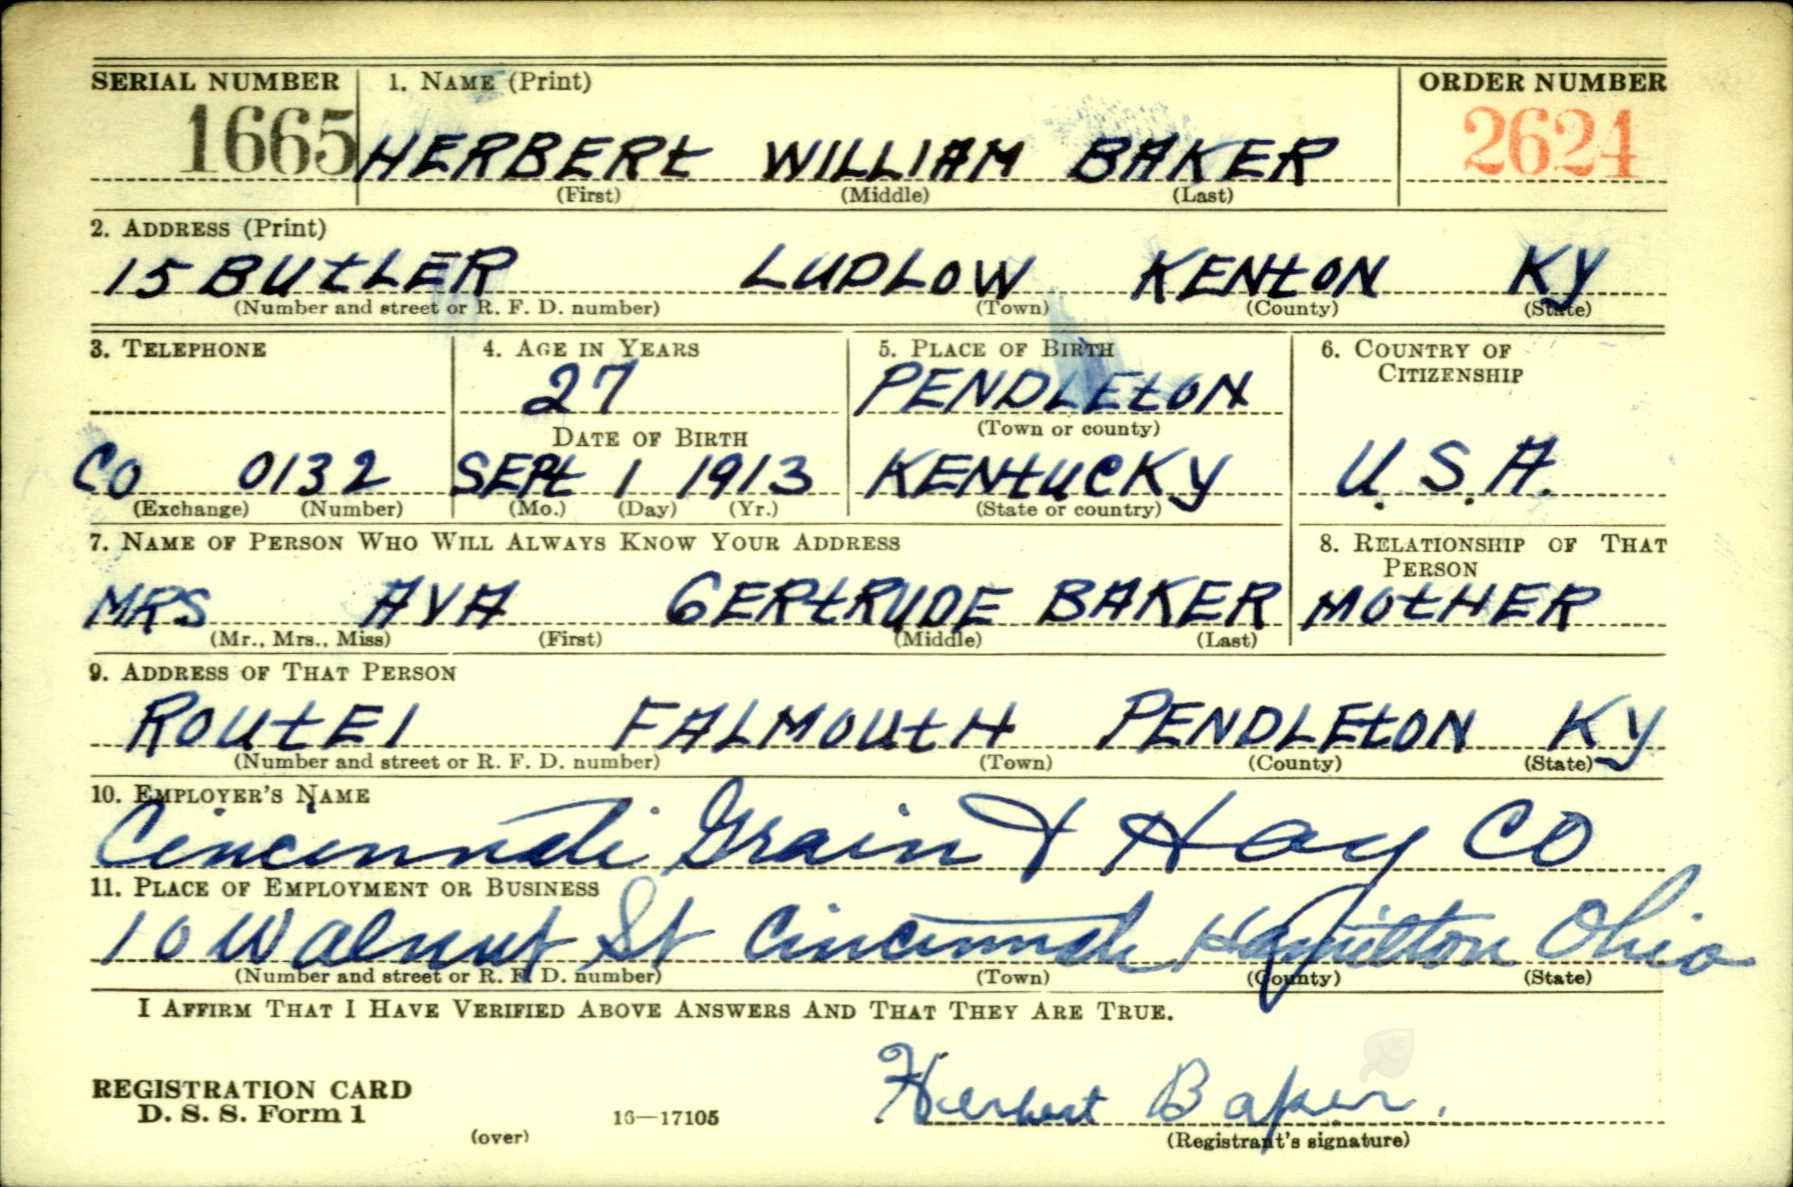 SERIAL NUMBER 1. NAME (Print) ORDER NUMBER
1665 HERBERt WILLIAM BAKER 2624
(First) (Middle) (Last)
2. ADDRESS (Print)
15 BUtLER LUDLOW KENtON KY
(Number and street or R. F. D. number) (Town) (County) (State)
3. TELEPHONE 4. AGE IN YEARS 5. PLACE OF BIRTH 6. COUNTRY OF
CITIZENSHIP
27 PENDLEtON
DATE OF BIRTH (Town or county)
CO 0132 SEPt 1 1913 KENtUCKY U.S.A.
(Exchange) (Number) (Mo.) (Day) (Yr.) (State or country)
7. NAME OF PERSON WHO WILL ALWAYS KNOW YOUR ADDRESS 8. RELATIONSHIP OF THAT
PERSON
MRS AVA GERtRUDE BAKER MOtHER
(Mr., Mrs., Miss) (First) (Middle) (Last)
9. ADDRESS OF THAT PERSON
ROUtE 1 FALMOUtH PENDLEtON KY
(Number and street or R. F. D. number) (Town) (County) (State)
10. EMPLOYER'S NAME
Cincinnati Grain & Hay CO
11. PLACE OF EMPLOYMENT OR BUSINESS
10 Walnut St Cincinnati Hamilton Ohio
(Number and street or R. F. D. number) (Town) (County) (State)
I AFFIRM THAT I HAVE VERIFIED ABOVE ANSWERS AND THAT THEY ARE TRUE.
REGISTRATION CARD
D. S. S. Form 1 16—17105 Herbert Baker.
(over) (Registrant's signature)